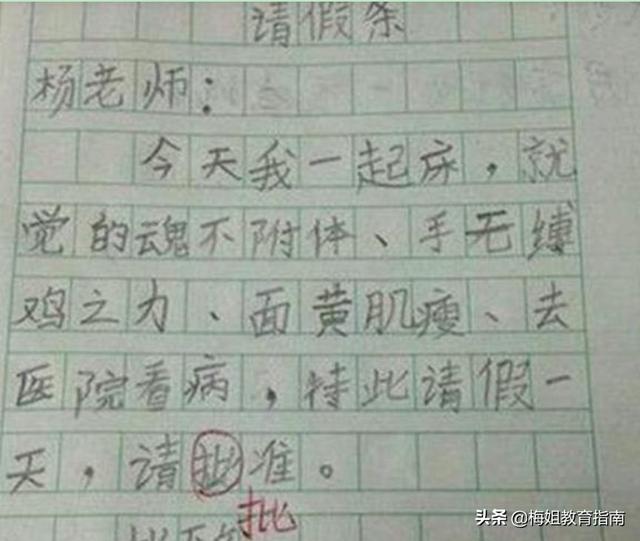 请假条
杨老师：
今天我一起床，就
觉的魂不附体、手无缚
鸡之力、面黄肌瘦、去
医院看病，特此请假一
天，请批准。
批
头条 @梅姐教育指南